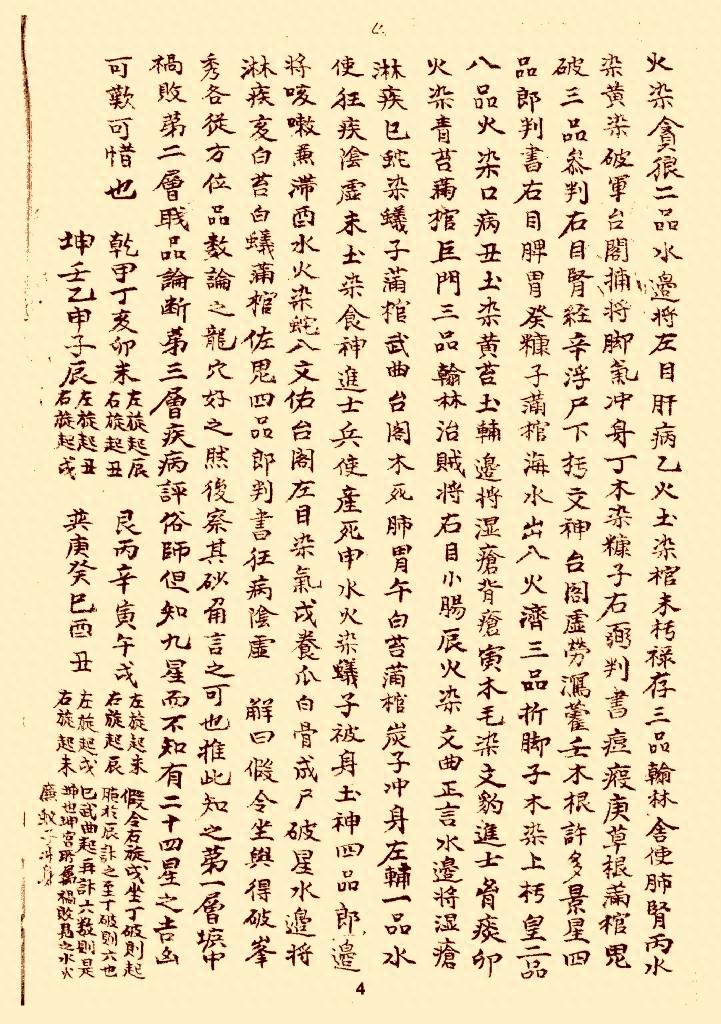 火染貪狼二品水邊將左目肝病乙火土染棺未朽祿存三品翰林舍使肺腎丙水
染黃染破軍台閣捕將脚氣冲身丁木染糠子右弼判書痘瘕庚草根滿棺鬼
破三品參判右目腎経辛浮尸下朽文神台閣虛勞瀉藿壬木根許多景星四
品郎判書右目脾胃癸糠子滿棺海水出入火濟三品折脚子木染上朽皇二品
八品火染口病丑土染黃苔土輔邊將湿瘡背瘡寅木毛染文豹進士骨痰卯
火染青苔滿棺巨門三品翰林治賊將右目小腸辰火染文曲正言水邊將湿瘡
淋疾巳蛇染蟻子滿棺武曲台閣木死肺胃午白苔滿棺炭子冲身左輔一品水
使狂疾陰虛未土染食神進士兵使產死申水火染蟻子被身土神四品郎邊
將咳嗽熏滯酉水火染蛇入文佑台閣左目染氣戌養瓜白骨成尸破星水邊將
淋疾亥白苔白蟻滿棺佐鬼四品郎判書狂病陰虛 解曰假令坐與得破峯
秀各從方位品數論之龍穴好之然後察其砂角言之可也推此知之第一層壙中
禍敗第二層職品論斷第三層疾病評俗師但知九星而不知有二十四星之吉凶
可歎可惜也
乾甲丁亥卯未 左旋起辰
右旋起丑
艮丙辛寅午戌 左旋起未
右旋起辰
坤壬乙申子辰 左旋起丑
右旋起戌
巽庚癸巳酉丑 左旋起戌
右旋起未
假令右旋戌坐丁破則起
胞於辰訃之至丁破則六也
巳武曲起再訃六数則是
坤也坤宮所屬禍敗見之水火
蟻子冲身
4